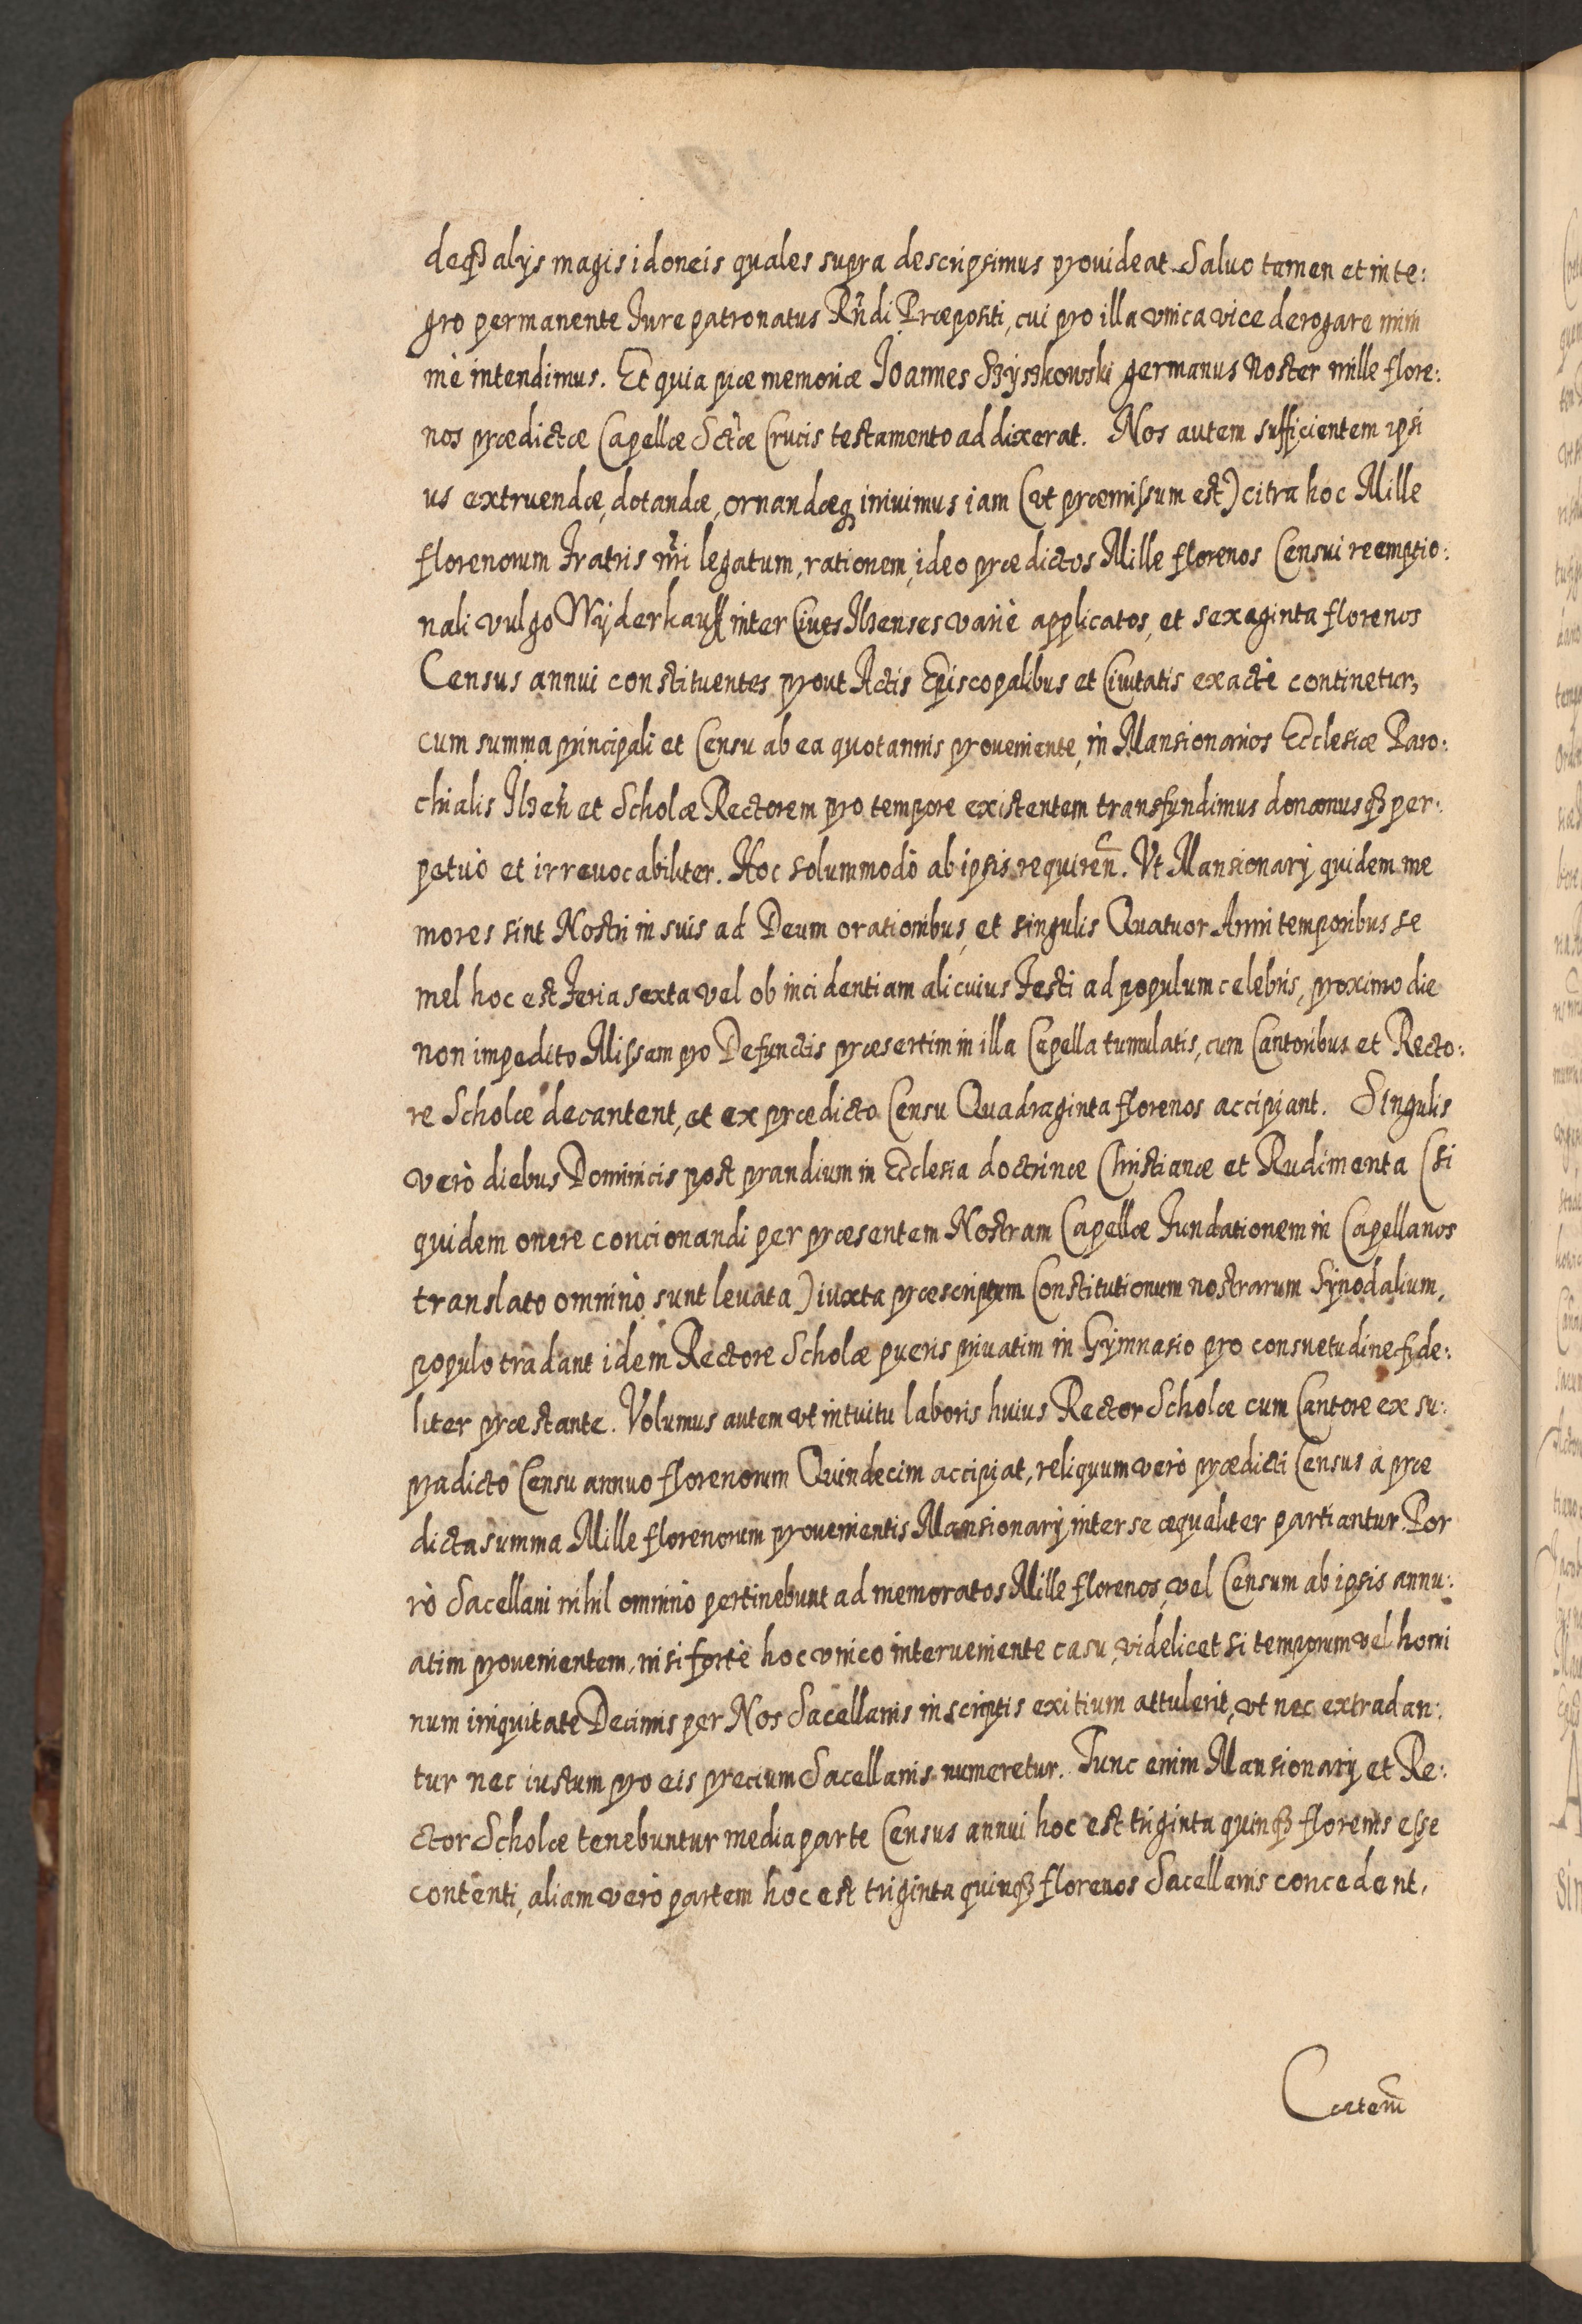 deq₃ alijs magis idoneis quales supra descripsimus prouideat. Saluo tamen et inte:
gro permanente Jure patronatus Rn̄di Præpositi, cui pro illa vnica vice derogare mini
mè intendimus. Et quia piæ memoriæ Joannes Szÿszkowski germanus Noster mille flore:
nos prædictæ Capellæ Sctæ Crucis testamento addixerat. Nos autem sufficientem ipsi
us extruendæ, dotandæ, ornandæq₃ iniuimus iam (vt præmissum est) citra hoc Mille
florenorum Fratris nr̄i legatum, rationem, ideo prædictos Mille florenos Censui reemptio:
nali vulgo Wÿderkauff inter Ciues Ilzenses variè applicatos, et sexaginta florenos
Census annui constituentes prout Actis Episcopalibus et Ciuitatis exactè continetur,
cum summa principali et Censu ab ea quotannis proueniente, in Mansionarios Ecclesiæ Paro:
chialis Ilzen̄ et Scholæ Rectorem pro tempore existentem transfundimus donamusq₃ per:
petuò et irreuocabiliter. Hoc solummodò ab ipsis requiren̄. Vt Mansionarij quidem me
mores sint Nostri in suis ad Deum orationibus, et singulis Quatuor Anni temporibus se
mel hoc est Feria sexta vel ob incidentiam alicuius Festi ad populum celebris, proximo die
non impedito Missam pro Defunctis præsertim in illa Capella tumulatis, cum Cantoribus et Recto:
re Scholæ decantent, et ex prædicto Censu Quadraginta florenos accipiant. Singulis
verò diebus Dominicis post prandium in Ecclesia doctrinæ Christianæ et Rudimenta (si
quidem onere concionandi per præsentem Nostram Capellæ Fundationem in Capellanos
translato omninò sunt leuata) iuxta præscriptum Constitutionum nostrarum Sÿnodalium,
populo tradant idem Rectore Scholæ pueris priuatim in Gÿmnasio pro consuetudine fide:
liter præstante. Volumus autem vt intuitu laboris huius Rector Scholæ cum Cantore ex su:
pradicto Censu annuo florenorum Quindecim accipiat, reliquum verò prædicti Census a præ
dicta summa Mille florenorum prouenientis Mansionarij inter se æqualiter partiantur. Por
rò Sacellani nihil omninò pertinebunt ad memoratos Mille florenos, vel Censum ab ipsis annu:
atim prouenientem, nisi fortè hoc vnico interueniente casu, videlicet si temporum vel homi
num iniquitate Decimis per Nos Sacellanis inscriptis exitium attulerit, vt nec extradan:
tur nec iustum pro eis precium Sacellanis numeretur. Tunc enim Mansionarij et Re:
ctor Scholæ tenebuntur media parte Census annui hoc est triginta quinq₃ florenis esse
contenti, aliam verò partem hoc est triginta quinq₃ florenos Sacellanis concedent.